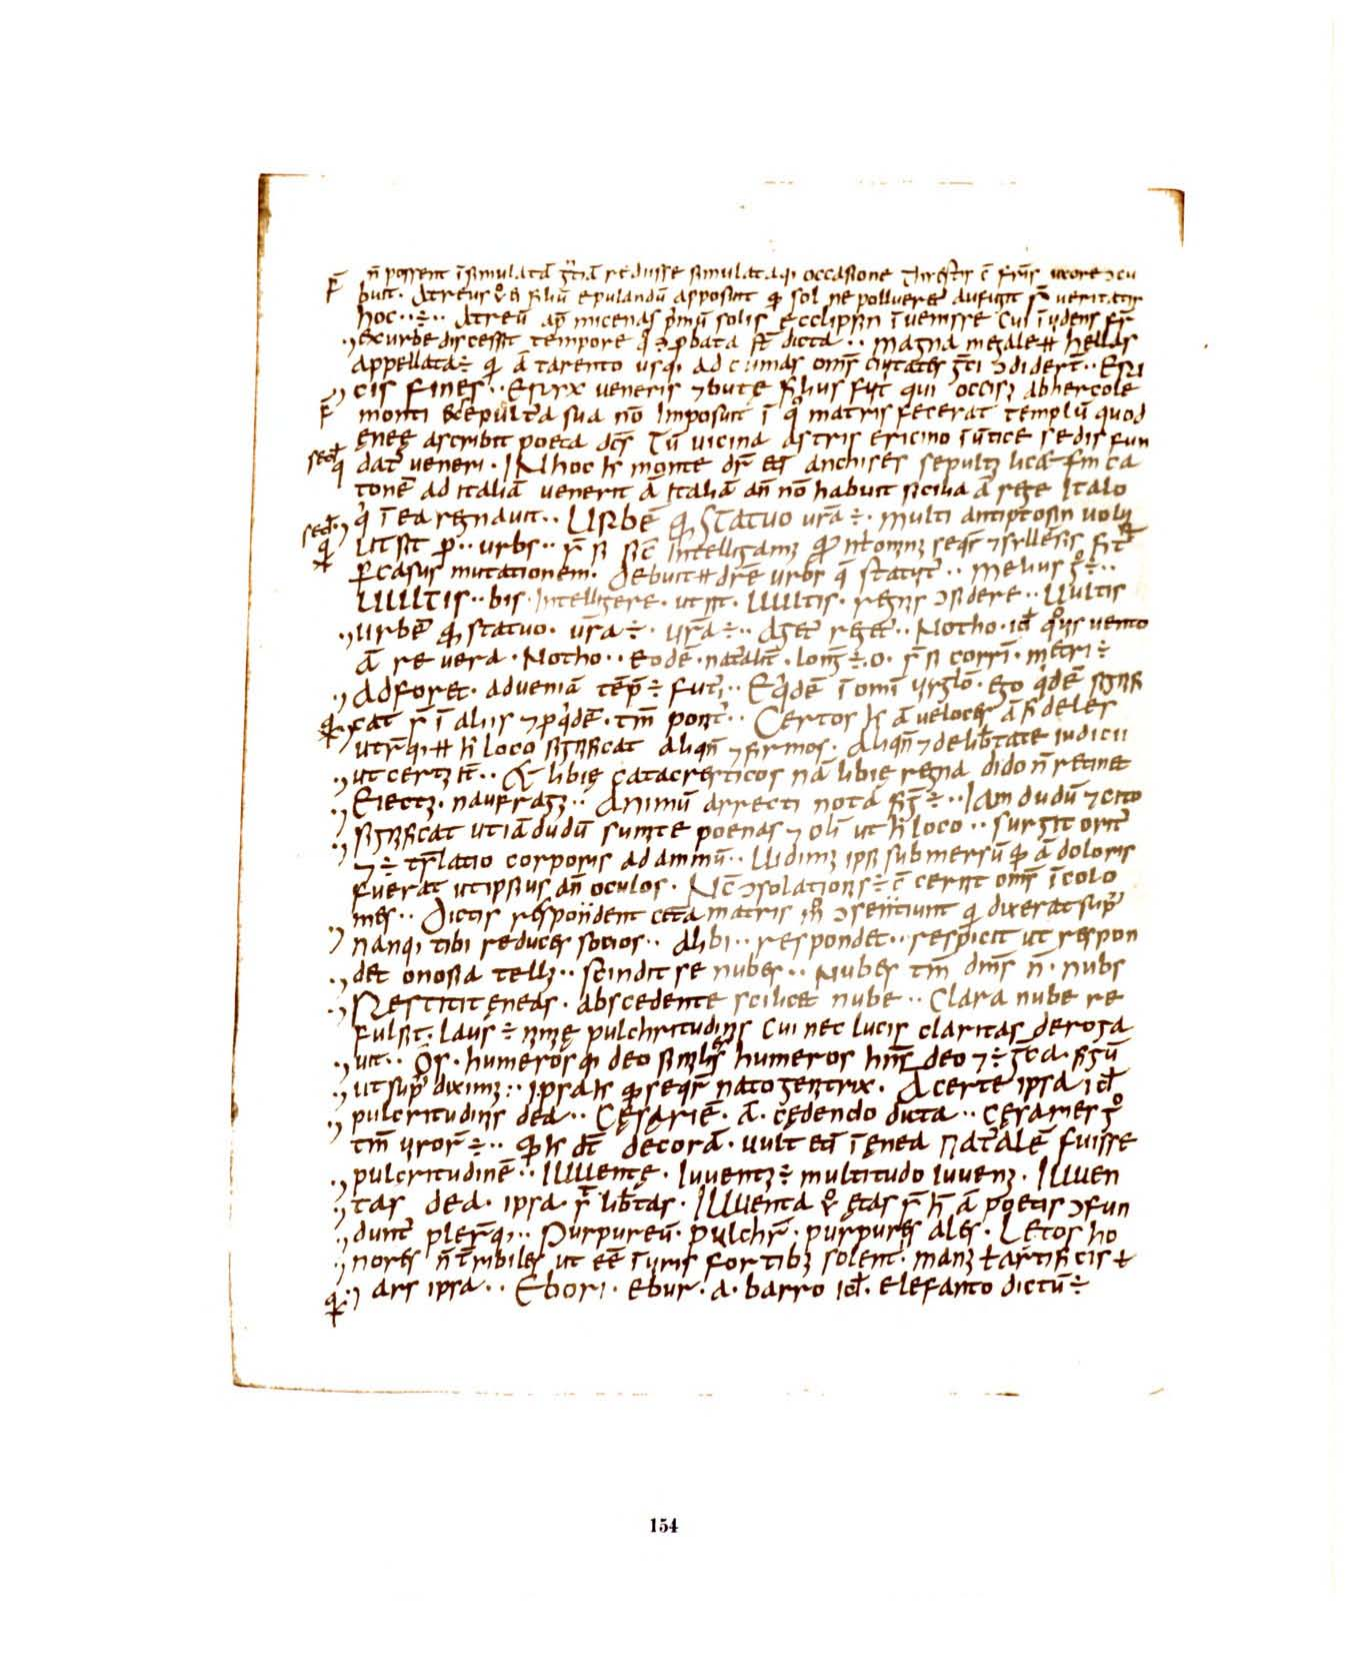 n̄ possent ī simulatā gr̄iā reduisse simulataq; occasione Thiestis ē frīs uxore ɔcu
buit· Atreus v̊ ei filiū epulandū apposuit qi sol ne pollueret᷑ aufugit s; ueritatis
hoc··÷·· Atreū ap̄ micenas p̄mū solis ecclipsin īuenisse cui īuidens fr̄
exurbe discessit tempore q̊ ɔ;pbata st̄ dicta·· magna megale ⁊⁊ hellas
appellata÷ qi ā tarento usq; ad cumas om̄s ciuitates gr̄ci ɔdidert̄·· Eryi
cis fines·· Eryx ueneris ⁊ bute filius fuit qui occisus ab hercole
monti ex sepultura sua nom̄ imposuit ī q̊ matris fecerat templū quod
eneę ascribit poeta dc̄s Tū uicina astris ericino ī uertice sedis fun
dat᷑ ueneri· IN hoc h̄ monte dr̄ et̄ anchises sepultus licet scdm ca
tonē ad italiā uenerit ā italiā an̄ nō habuit sicilia ā rege Italo
q̇ ī ea regnauit·· URbē qi STATuo ur̄ā÷· multi antiptosin uolu
ut sit p̄·· urbs·· s; si sic̄ intellegamus
p casus mutationem· debuit ⁊⁊ dr̄e urbs q̄ statuit᷑·· melius g̊÷··
UUltis·· bis· intellegere· ut sit· UUltis· regnis ɔsidere·· Uultis
urbē qi statuo· ur̄a÷· ur̄a÷·· Aget᷑ reget᷑·· Notho· id q̊uis uento
ā re uera· Notho·· eodē· natalit̄· lonḡ÷·o· s; si corrī· metri÷
Adforet· adueniā tēp̄÷ futī·· Eq̇dē ī omī uirglō· ego q̇dē signifi
cat s; ī aliis ⁊ p q̇dē· tm̄ ponit᷑·· Certos h̄ ā ueloces ā fideles
utrūq; ⁊⁊ h̄ loco significat aliqn̄ ⁊ firmos· Aliqn̄ ⁊ delibr̄tate iudicii
ut certus st̄·· Et libię catacresticos nā libię regna dido n̄ retinet
Eiectus· naufragus·· Animū arrecti notā fig̅÷·· Iam dudū ⁊ cito
significat ut iā dudū sumite poenas ⁊ olī ut h̄ loco·· surgit orit᷑
⁊÷ trs̄latio corporis ad animū·· Uidimus ipsi submersū qi ā doloris
fuerat ut ipsius an̄ oculos· Nc̄ ɔsolationis÷ ē cernit om̄s īcolo
mes·· dictis respondent cet̄a matris ɔsentiunt qi dixerat sup᷑
nanq; tibi reduces socios·· Alibi·· respondet·· respicit ut respon
det onosia tellus·· scindit se nubes·· Nubes tm̄ dm̄s n̄· nubs
Restitit ęneas· abscedente scilicet nube·· Clara nube re
fulsit· laus÷ nimię pulchritudinis cui nec lucis claritas deroga
uit·· Ōs· humerosq; deo similis humeros hn̄s deo ⁊÷ grc̄a· figū
ut sup᷑ diximus:· ipsa h̄ qi seqr̄ nato genitrix· A certe ipsa id
pulcritudinis dea·· Cęsariē· ā· cędendo dicta·· Cęsaries g̊
tm̄ uiror̄÷·· qi h̄ dt̄ decorā· uult et̄ ī enea nat᷑alē fuisse
pulcritudinē·· IUUentę· Iuuentus÷ multitudo iuuenum· IUUen
tas dea· ipsa· s; libr̄tas· IUUenta v̊ ętas s; h̄ ā poetis ɔfun
dunt᷑ pler̄q;·· Purpureū· pulchr̄· purpureis ales· Letos ho
nores n̄ t̄ribiles ut eē ī uiris fortibus solent· manus ł artificis ł
ars ipsa·· Ebori· Ebur· a· barro id· elefanto dictū÷
154